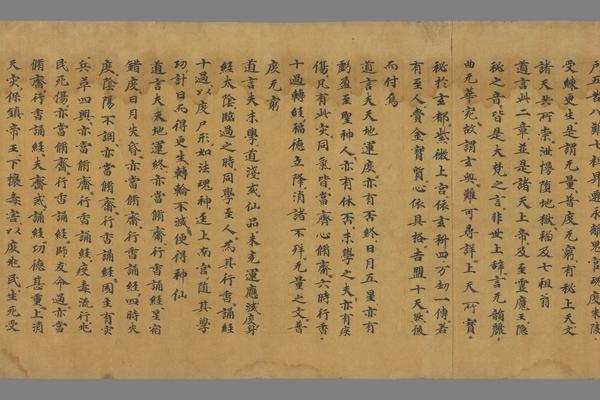 戶五苦八難七祖昇遷永離鬼官魂度朱陵
受練更生是謂无量普度无窮有秘上天文
諸天共所崇泄慢墮地獄禍及七祖翁
道言此二章並是諸天上帝及至靈魔王隱
秘之音皆是大梵之言非世上辭言无韻麗
曲无華宛故謂玄奧難可尋詳上天所寶
秘於玄都紫微上宮依玄科四万劫一傳若
有至人齎金寶質心依具格告盟十天然後
而付焉
道言夫天地運度亦有否終日月五星亦有
虧盈至聖神人亦有休否末學之夫亦有疾
傷凡有此灾同氣皆當齊心脩齋六時行香
十過轉經福德立降消諸不祥无量之文普
度无窮
道言夫末學道淺或仙品未充運應滅度身
經太陰臨過之時同學至人為其行香誦經
十過以度尸形如法魂神逕上南宮隨其學
功計日而得更生轉輪不滅便得神仙
道言夫天地運終亦當脩齋行香誦經星宿
錯度日月失昏亦當脩齋行香誦經四時失
度陰陽不調亦當脩齋行香誦經國主有灾
兵革四興亦當脩齋行香誦經疫毒流行兆
民死傷亦當脩齋行香誦經師友命過亦當
脩齋行香誦經夫齋戒誦經功德甚重上消
天灾保鎮帝王下攘毒害以度兆民生死受